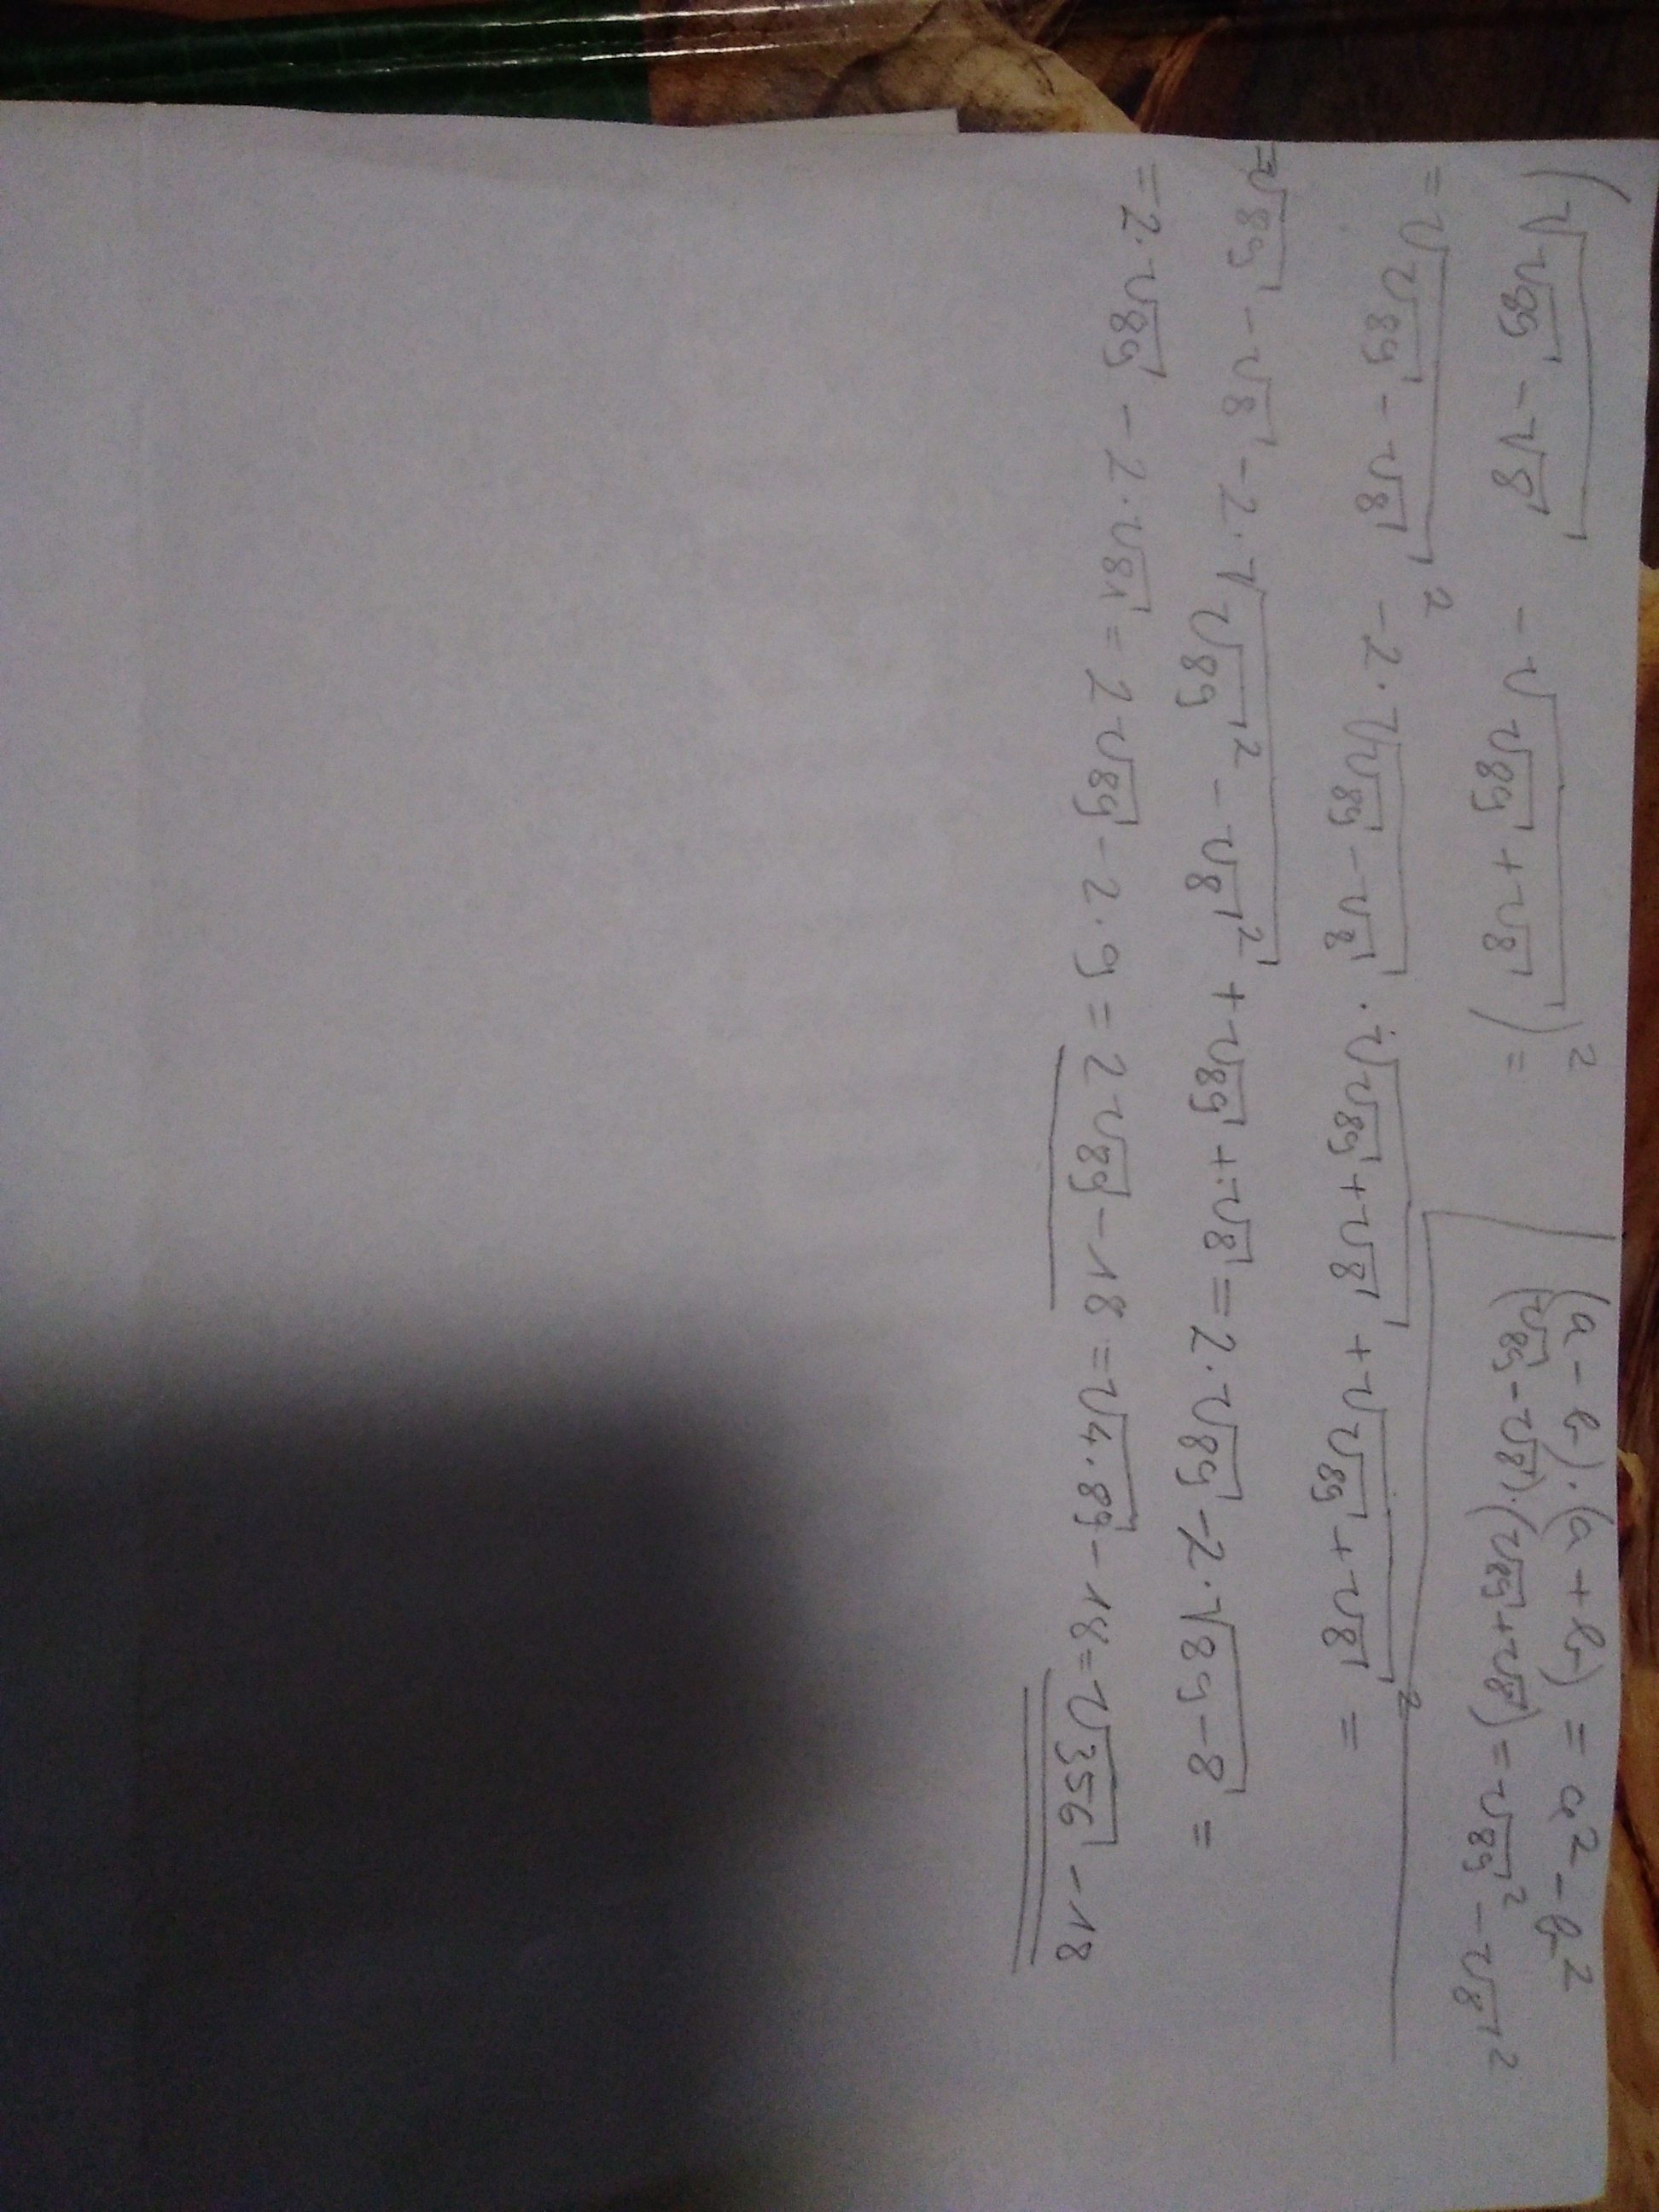 (√(√89 - √8) - √(√89 + √8))² =
(a - b)·(a + b) = a² - b²
(√89 - √8)·(√89 + √8) = √89² - √8²
= √(√89 - √8)² - 2·√(√89 - √8) · √(√89 + √8) + √(√89 + √8)² =
= √89 - √8 - 2·√(√89² - √8²) + √89 + √8 = 2·√89 - 2·√(89 - 8) =
= 2·√89 - 2·√81 = 2√89 - 2·9 = 2√89 - 18 = √(4·89) - 18 = √356 - 18